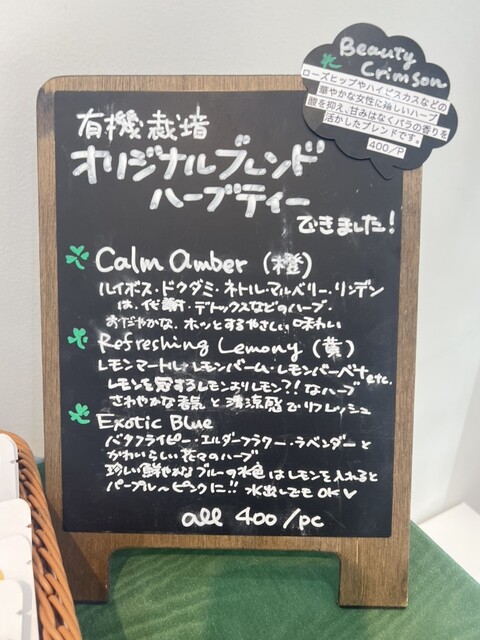 Beauty
Crimson
ローズヒップやハイビスカスなどの
華やかな女性に嬉しいハーブ
酸を抑え、甘みはなくバラの香りを
活かしたブレンドです。
400/P
有機栽培
オリジナルブレンド
ハーブティー
できました!
Calm Amber (橙)
ルイボス・ドクダミ・ネトル・マルベリー・リンデン
は、代謝・デトックスなどのハーブ。
おだやかな、ホッとするやさしい味わい
Refreshing Lemony (黄)
レモンマートル・レモンバーム・レモンバーベナetc.
レモンを冠するレモンよりレモン?!なハーブ
さわやかな香気と清涼感でリフレッシュ
Exotic Blue
バタフライピー・エルダーフラワー・ラベンダーと
かわいらしい花々のハーブ
珍しい鮮やかなブルーの水色はレモンを入れると
パープル〜ピンクに!! 水出しでもOK♡
all 400/pc